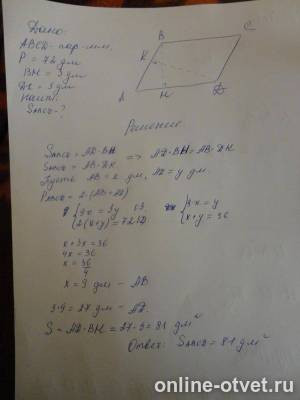 Дано:
ABCD - пар-мм.
P = 72 дм
BH = 3 дм
DK = 9 дм
Найти:
S ABCD - ?
B
C
K
A
H
D
Решение
S ABCD = AD·BH => AD·BH = AB·DK
S ABCD = AB·DK
Пусть AB = x дм, AD = y дм.
P ABCD = 2·(AB+AD)
9x = 3y |:3 3·x = y
2(x+y) = 72 |:2 x+y = 36
x+3x = 36
4x = 36
x = 36/4
x = 9 дм - AB
3·9 = 27 дм - AD.
S = AD·BH = 27·3 = 81 дм²
Ответ: S ABCD = 81 дм²
online-otvet.ru